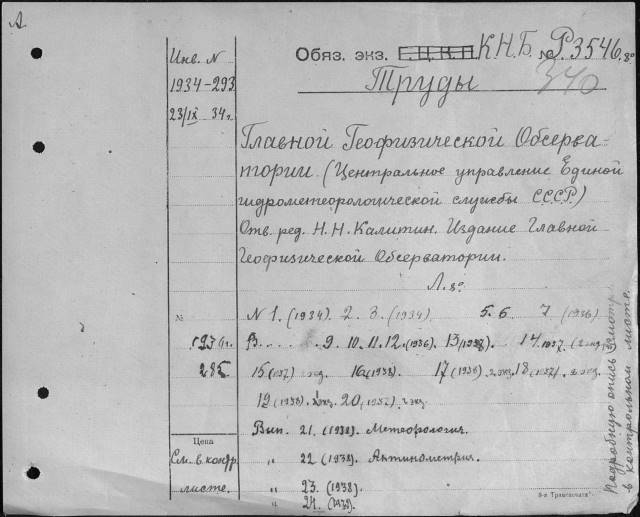 А
Инв. №
1934-293
23/IX 34 г.
Обяз. экз. Г.Ц.К.П. К.Н.Б. № Р3546.8°
340
Труды
Главной Геофизической Обсерва-
тории. (Центральное управление Единой
гидрометеорологической службы СССР)
Отв. ред. Н.Н. Калитин. Издание Главной
Геофизической Обсерватории.
Л. 8°
№
N 1. (1934) 2. 3. (1934) 5. 6 7 (1936)
В 9. 10. 11. 12. (1936). 13 (1937). 14. 1937. (2 экз.)
285
15 (1937) 2 экз. 16 (1938). 17 (1936). 2 экз. 18 (1937). 2 экз.
19 (1938). экз. 20 (1937). 2 экз.
Вып. 21. (1938). Метеорология.
Цена
См. в контр.
листе.
" 22 (1938). Актинометрия.
" 23. (1938)
" 24. (1938).
Подробную опись смотр.
в контрольном листе.